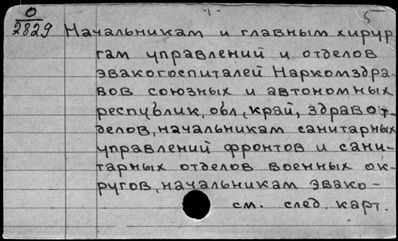 О
2829
Начальникам и главным хирур
гам управлений и отделов
эвакогоспиталей Наркомздра-
вов союзных и автономных
республик, обл, край, здравот-
делов, начальникам санитарных
управлений фронтов и сани-
тарных отделов военных ок-
ругов, начальникам эвако-
см. след. карт.